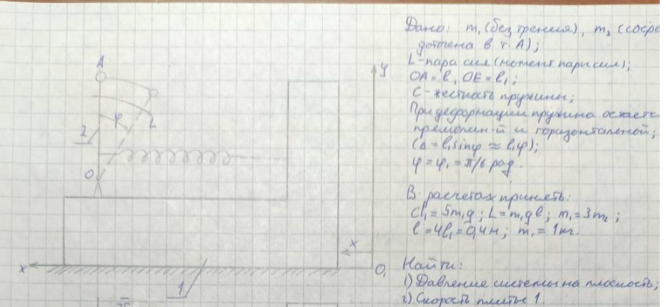 Дано: m₁ (без трения), m₂ (сосре
доточена в т. A);
L-пара сил (момент пары сил);
OA = l, OE = l₁;
C - жесткость пружины;
При деформации пружина остается
прямолин-й и горизонтальной;
(Δ = l₁sinφ ≈ l₁φ);
φ = φ₁ = π/6 рад.
В расчетах принять:
cl₁ = 5m₁g; L = m₁gl; m₁ = 3m₂;
l = 4l₁ = 0,4м; m₁ = 1кг.
Найти:
1) Давление системы на плоскость;
2) Скорость плиты 1.
A
y
φ
L
2
O
x
x
O₁
1